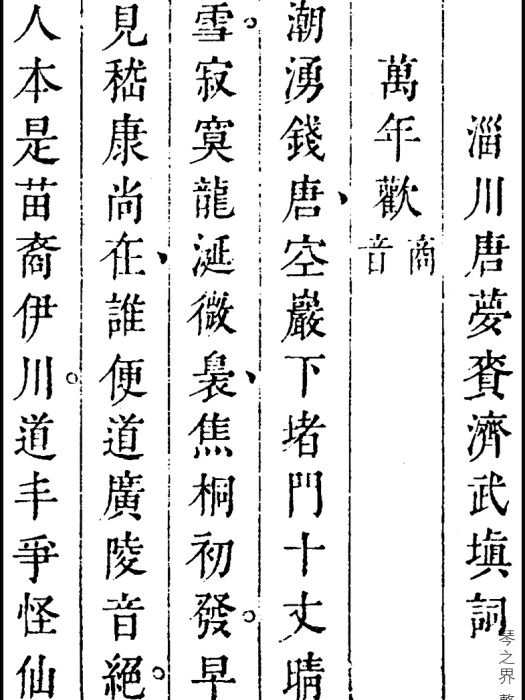 淄川唐夢賚濟武塡詞
萬年歡
商音
潮湧錢唐、空巖下堵門十丈晴
雪。寂寞龍涎微裊、焦桐初發。早
見嵇康尚在、誰便道廣陵音絕。
人本是苗裔伊川。道丰爭怪仙
琴之界